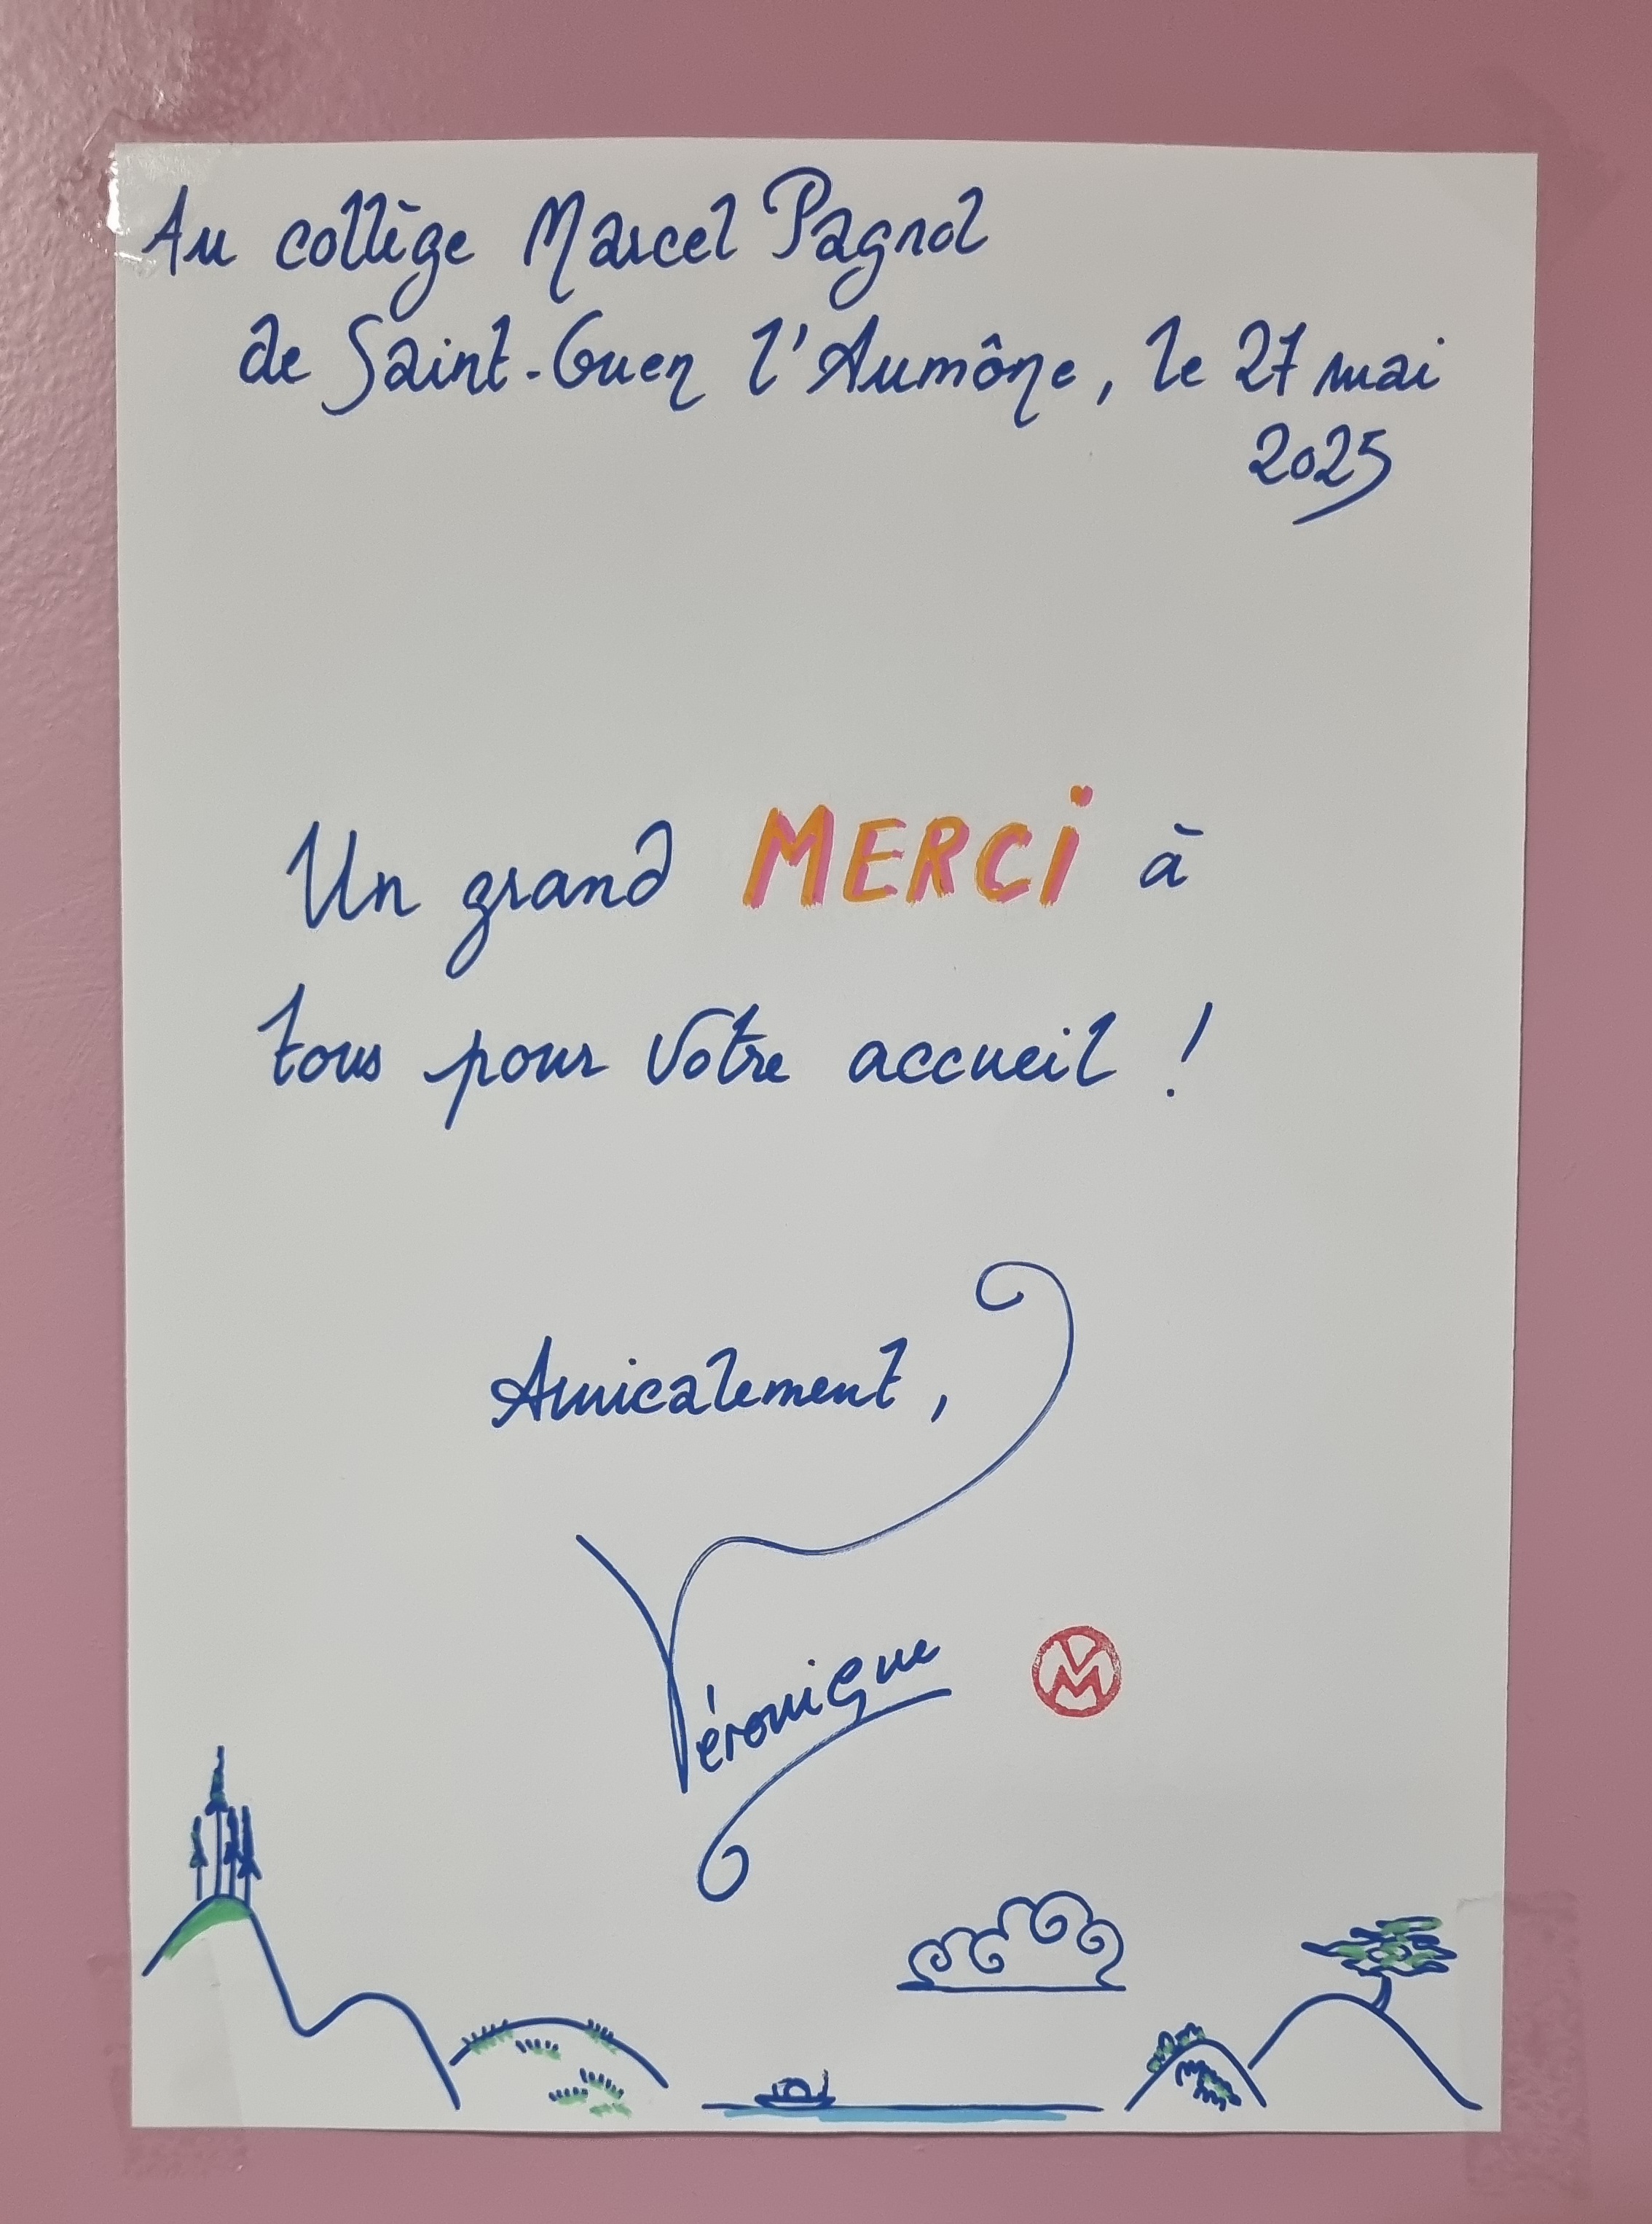 Au collège Marcel Pagnol
de Saint-Ouen l'Aumône, le 27 mai
2025
Un grand MERCi à
tous pour votre accueil !
Amicalement,
Véronique
VM